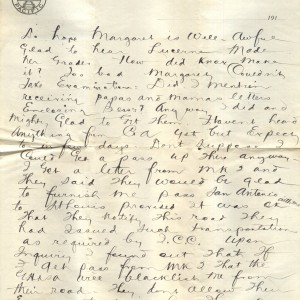 191
So hope Margaret is Well. Awful
Glad to hear Lucerne Made
her Grades. How did know Make
it? Too bad Margaret Couldn't
Take Examination. Did I Mention
receiving papas and Mamas letters
Any way I did and
Might Glad to Get them. Havent head
Anything from C&A Yet but Expect
to in few days Dont Suppose I
Could Get a pass up There anyway.
I Got a letter from MK and
They Said They Would be Glad
to furnish Me pass San Antonio
to provided it was OK
That They Notify This road They
had Issued Such Transportation
as required by I.C.C. Upon
Inquiry I found out That If
I Get pass from MK That the
blacklist Me from
their road. They dont Allow Their